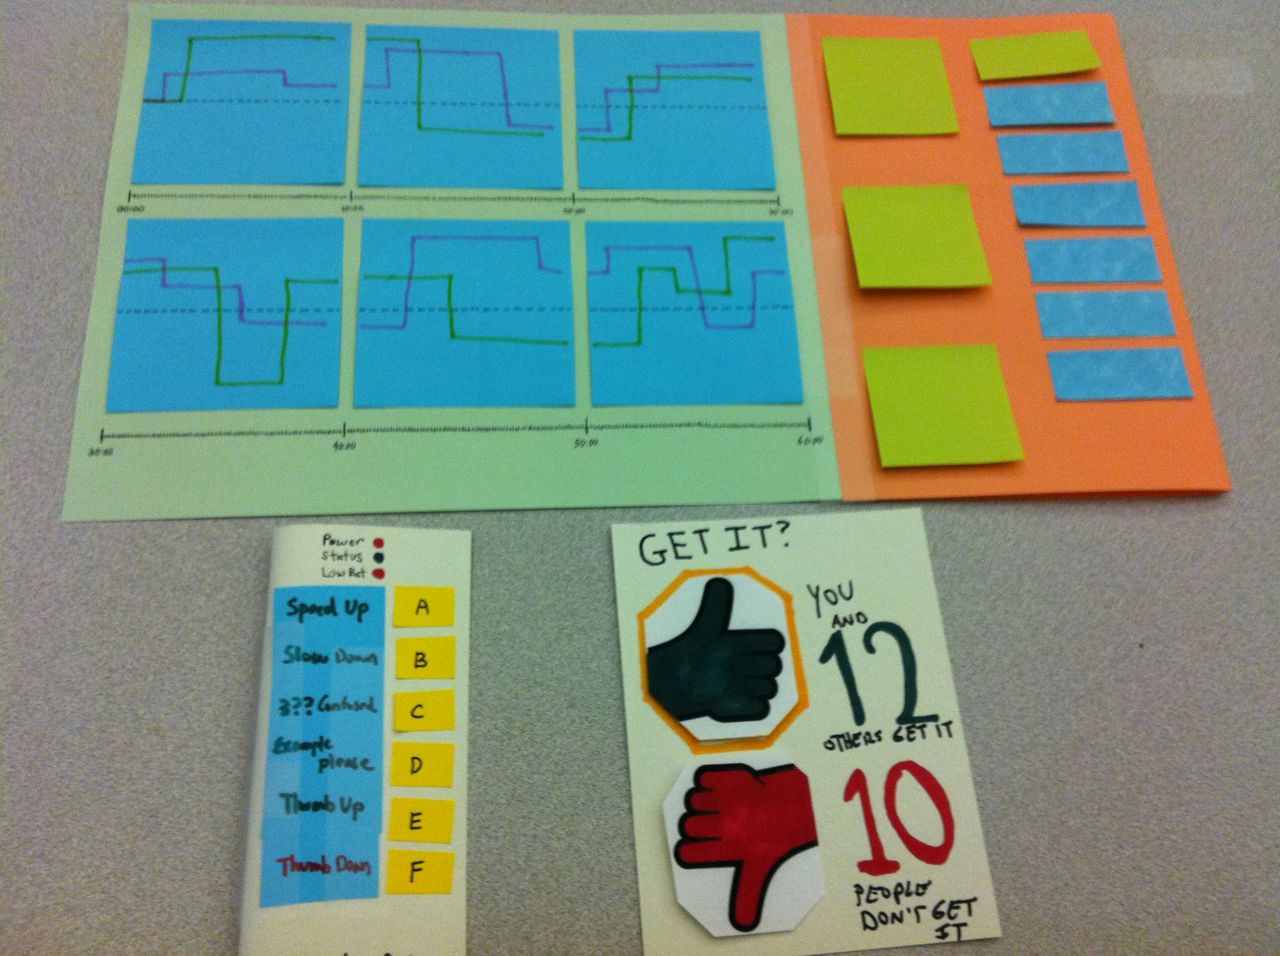 00:00
10:00
20:00
30:00
30:00
40:00
50:00
60:00
Power
Status
Low Bat
Speed Up A
Slow Down B
??? Confused C
Example
please D
Thumb Up E
Thumb Down F
GET IT?
YOU
AND
12
OTHERS GET IT
10
PEOPLE
DON'T GET
IT